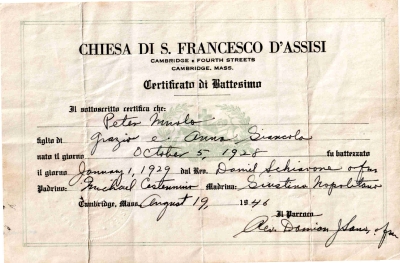 CHIESA DI S. FRANCESCO D'ASSISI
CAMBRIDGE & FOURTH STREETS
CAMBRIDGE, MASS.
Certificato di Battesimo
Il sottoscritto certifica che:
Peter Muolo
figlio di Grazio e. Anna Giancola
nato il giorno October 5, 1928 fu battezzato
il giorno January 1, 1929 dal Rev. Daniel Schiavone ofm
Padrino: Michael Madrina: Giustina Napolitano
Cambridge, Mass. August 19, 1946
Il Parroco
Rev. Damian J. ofm